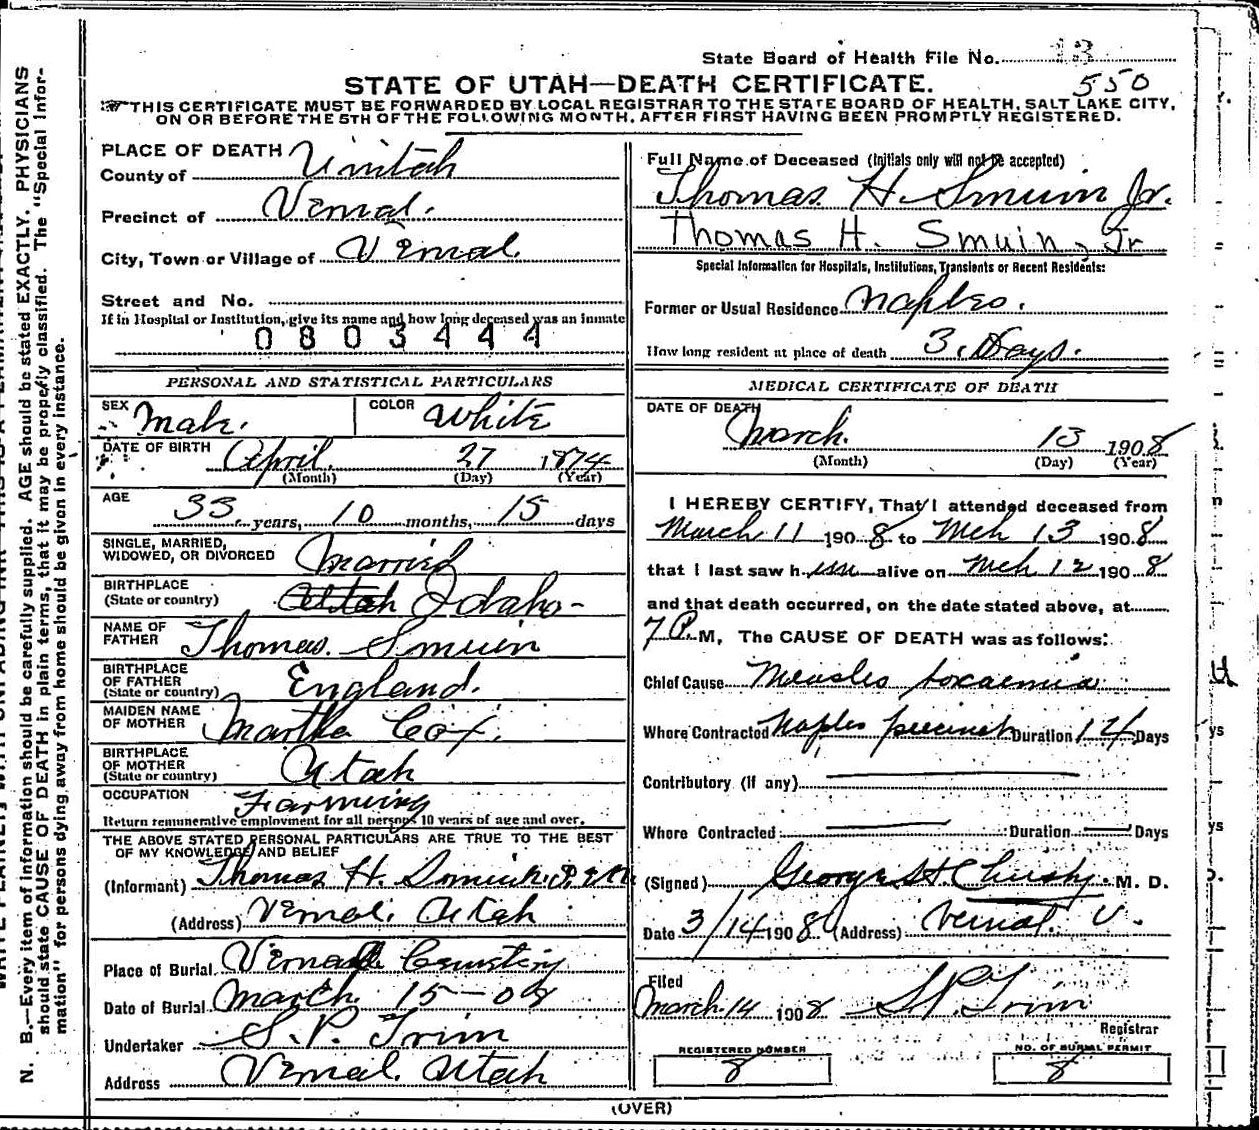 State Board of Health File No. 13
550
STATE OF UTAH—DEATH CERTIFICATE.
THIS CERTIFICATE MUST BE FORWARDED BY LOCAL REGISTRAR TO THE STATE BOARD OF HEALTH, SALT LAKE CITY,
ON OR BEFORE THE 5TH OF THE FOLLOWING MONTH, AFTER FIRST HAVING BEEN PROMPTLY REGISTERED.
PLACE OF DEATH
County of Uintah
Precinct of Vernal.
City, Town or Village of Vernal.
Street and No.
If in Hospital or Institution, give its name and how long deceased was an inmate
0803444
PERSONAL AND STATISTICAL PARTICULARS
SEX Male. COLOR White
DATE OF BIRTH April. 27 1874
(Month) (Day) (Year)
AGE 33 years, 10 months, 15 days
SINGLE, MARRIED,
WIDOWED, OR DIVORCED Married
BIRTHPLACE
(State or country) Utah Idaho-
NAME OF
FATHER Thomas. Smuin
BIRTHPLACE
OF FATHER
(State or country) England.
MAIDEN NAME
OF MOTHER Martha Cox.
BIRTHPLACE
OF MOTHER
(State or country) Utah
OCCUPATION Farming
Return remunerative employment for all persons 10 years of age and over.
THE ABOVE STATED PERSONAL PARTICULARS ARE TRUE TO THE BEST
OF MY KNOWLEDGE AND BELIEF
(Informant) Thomas H.
(Address) Vernal. Utah
Place of Burial Vernal Cemetery
Date of Burial March. 15-08
Undertaker S. P. Trim
Address Vernal. Utah
Full Name of Deceased (Initials only will not be accepted)
Thomas H. Smuin Jr.
Thomas H. Smuin, Jr
Special Information for Hospitals, Institutions, Transients or Recent Residents:
Former or Usual Residence Naples.
How long resident at place of death 3. Days.
MEDICAL CERTIFICATE OF DEATH
DATE OF DEATH
March. 13 1908
(Month) (Day) (Year)
I HEREBY CERTIFY, That I attended deceased from
March 11 1908 to Mch 13 1908
that I last saw him alive on Mch 12 1908
and that death occurred, on the date stated above, at
7 P. M, The CAUSE OF DEATH was as follows:
Chief Cause Measles toxaemia
Where Contracted Naples precinct Duration 14 Days
Contributory (If any)
Where Contracted Duration Days
(Signed) George H. M. D.
Date 3/14 1908 (Address) Vernal. U.
Filed
March. 14 1908 S. P. Trim
Registrar
REGISTERED NUMBER
8
NO. OF BURIAL PERMIT
8
(OVER)
N. B.—Every item of information should be carefully supplied. AGE should be stated EXACTLY. PHYSICIANS
should state CAUSE OF DEATH in plain terms, that it may be properly classified. The "Special Infor-
mation" for persons dying away from home should be given in every instance.